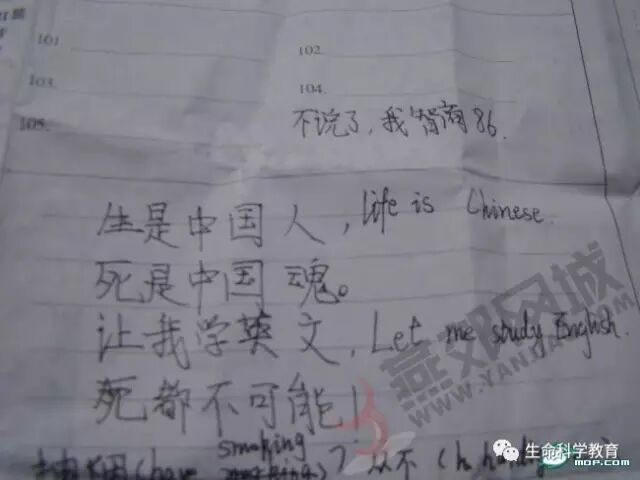 101.
102.
103.
104.
不说了,我智商86.
105.
生是中国人,life is Chinese.
死是中国魂。
让我学英文,Let me study English.
死都不可能!
smoking
(have
从不(
燕郊网城
WWW.YANJIAO
生命科学教育
MOP.COM